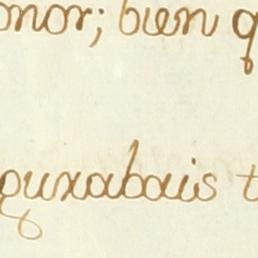 onor; bien q
quxabais t